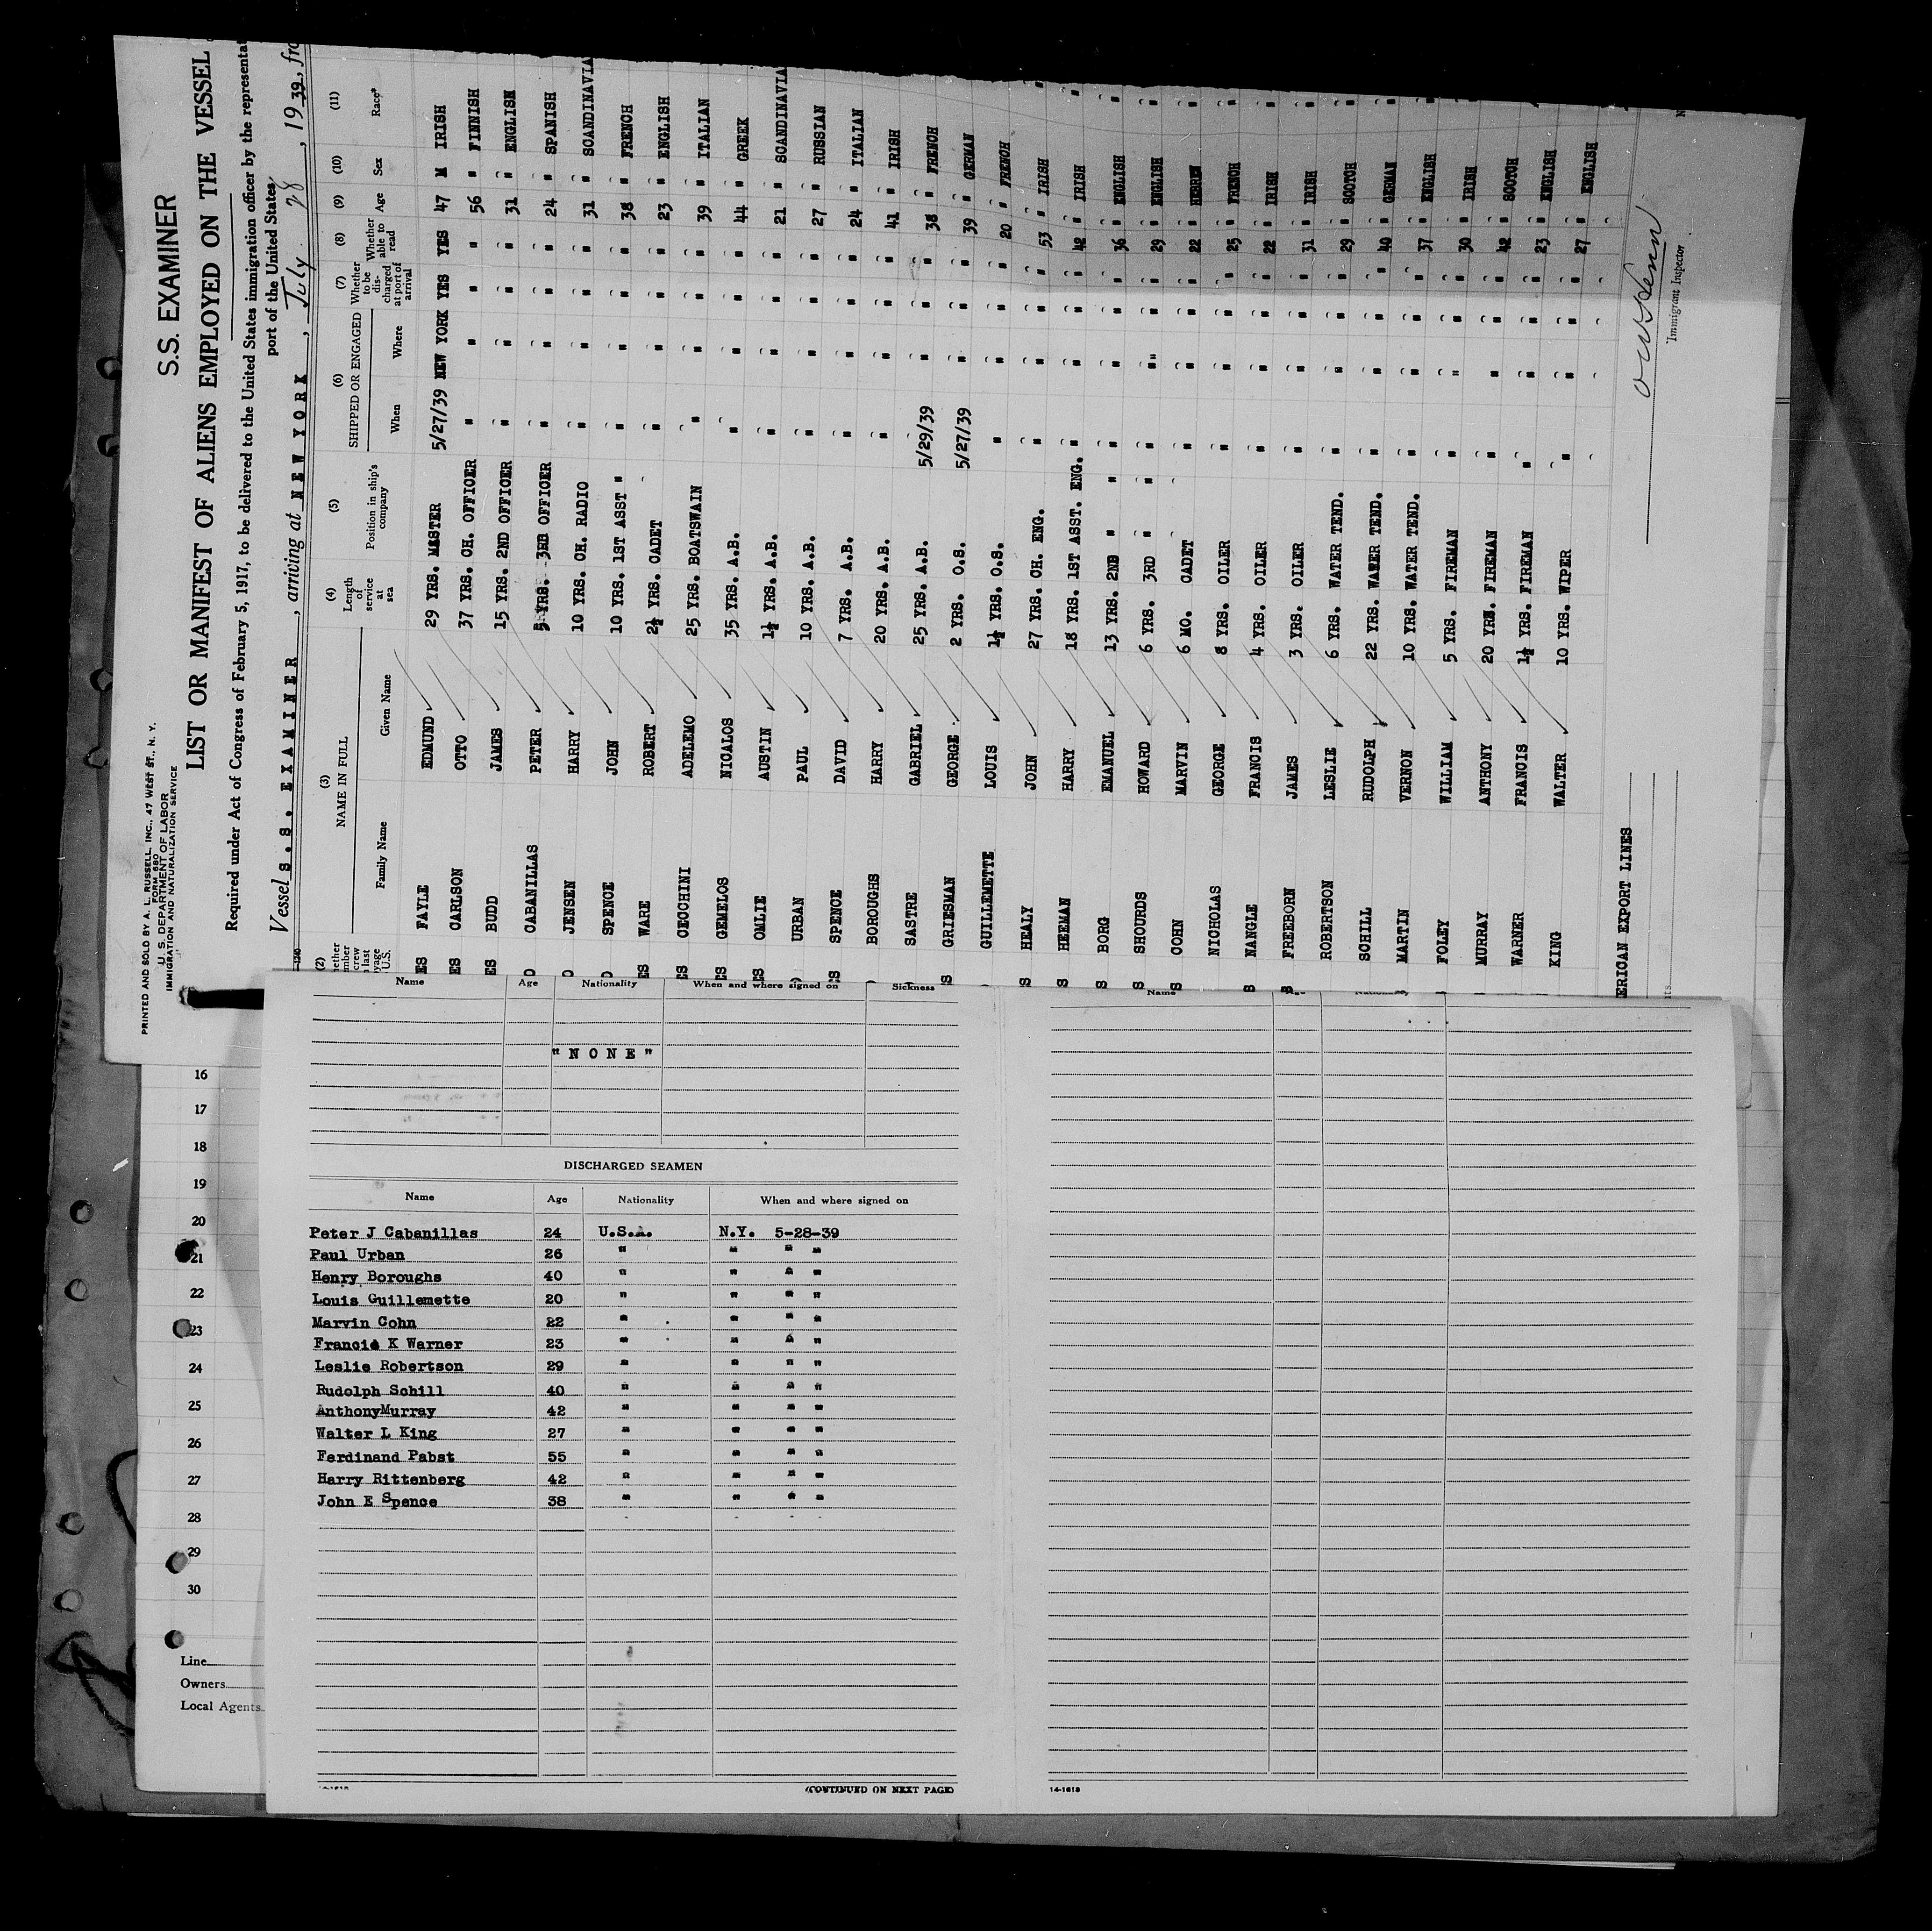 PRINTED AND SOLD BY A. L. RUSSELL, INC., 47 WEST ST., N. Y.
FORM 680
U. S. DEPARTMENT OF LABOR
IMMIGRATION AND NATURALIZATION SERVICE
S.S. EXAMINER
LIST OR MANIFEST OF ALIENS EMPLOYED ON THE VESSEL
Required under Act of Congress of February 5, 1917, to be delivered to the United States immigration officer by the representat
port of the United States
Vessel S.S. EXAMINER, arriving at NEW YORK, July 28, 1939, fro
(2) (3) (4) (5) (6) (7) (8) (9) (10) (11)
NAME IN FULL
Family Name Given Name
Length of service at sea
Position in ship's company
SHIPPED OR ENGAGED
When Where
Whether to be discharged at port of arrival
Whether able to read
Age Sex Race*
ES FAYLE EDMUND 29 YRS. MASTER 5/27/39 NEW YORK YES YES 47 M IRISH
ES CARLSON OTTO 37 YRS. CH. OFFICER " " " " 56 " FINNISH
ES BUDD JAMES 15 YRS. 2ND OFFICER " " " " 31 " ENGLISH
O CABANILLAS PETER 5 YRS. 3RD OFFICER " " " " 24 " SPANISH
O JENSEN HARRY 10 YRS. CH. RADIO " " " " 31 " SCANDINAVIA
O SPENCE JOHN 10 YRS. 1ST ASST " " " " " 38 " FRENCH
ES WARE ROBERT 2½ YRS. CADET " " " " 23 " ENGLISH
ES CECCHINI ADELEMO 25 YRS. BOATSWAIN " " " " 39 " ITALIAN
ES GEMELOS NICALOS 35 YRS. A.B. " " " " 44 " GREEK
ES OMLIE AUSTIN 1½ YRS. A.B. " " " " 21 " SCANDINAVIA
URBAN PAUL 10 YRS. A.B. " " " " 27 " RUSSIAN
ES SPENCE DAVID 7 YRS. A.B. " " " " 24 " ITALIAN
BOROUGHS HARRY 20 YRS. A.B. " " " " 41 " IRISH
SASTRE GABRIEL 25 YRS. A.B. 5/29/39 " " " 38 " FRENCH
S GRIESMAN GEORGE 2 YRS. O.S. 5/27/39 " " " 39 " GERMAN
GUILLEMETTE LOUIS 1½ YRS. O.S. " " " " 20 " FRENCH
S HEALY JOHN 27 YRS. CH. ENG. " " " " 53 " IRISH
S HEEMAN HARRY 18 YRS. 1ST ASST. ENG. " " " " 42 " IRISH
S BORG EMANUEL 13 YRS. 2ND " " " " " 36 " ENGLISH
S SHOURDS HOWARD 6 YRS. 3RD " " " " " 29 " ENGLISH
S COHN MARVIN 6 MO. CADET " " " " 22 " HEBREW
NICHOLAS GEORGE 8 YRS. OILER " " " " 25 " FRENCH
S NANGLE FRANCIS 4 YRS. OILER " " " " 22 " IRISH
S FREEBORN JAMES 3 YRS. OILER " " " " 31 " IRISH
ROBERTSON LESLIE 6 YRS. WATER TEND. " " " " 29 " SCOTCH
SCHILL RUDOLPH 22 YRS. WATER TEND. " " " " 40 " GERMAN
MARTIN VERNON 10 YRS. WATER TEND. " " " " 37 " ENGLISH
FOLEY WILLIAM 5 YRS. FIREMAN " " " " 30 " IRISH
MURRAY ANTHONY 20 YRS. FIREMAN " " " " 42 " SCOTCH
WARNER FRANCIS 1½ YRS. FIREMAN " " " " 23 " ENGLISH
KING WALTER 10 YRS. WIPER " " " " 27 " ENGLISH
ERICAN EXPORT LINES
Immigrant Inspector
Name Age Nationality When and where signed on Sickness
"NONE"
DISCHARGED SEAMEN
Name Age Nationality When and where signed on
Peter J Cabanillas 24 U.S.A. N.Y. 5-28-39
Paul Urban 26 " " " "
Henry Boroughs 40 " " " "
Louis Guillemette 20 " " " "
Marvin Cohn 22 " " " "
Francis K Warner 23 " " " "
Leslie Robertson 29 " " " "
Rudolph Schill 40 " " " "
AnthonyMurray 42 " " " "
Walter L King 27 " " " "
Ferdinand Pabst 55 " " " "
Harry Rittenberg 42 " " " "
John E Spence 38 " " " "
(CONTINUED ON NEXT PAGE)
14-1618
16
17
18
19
20
21
22
23
24
25
26
27
28
29
30
Line
Owners
Local Agents